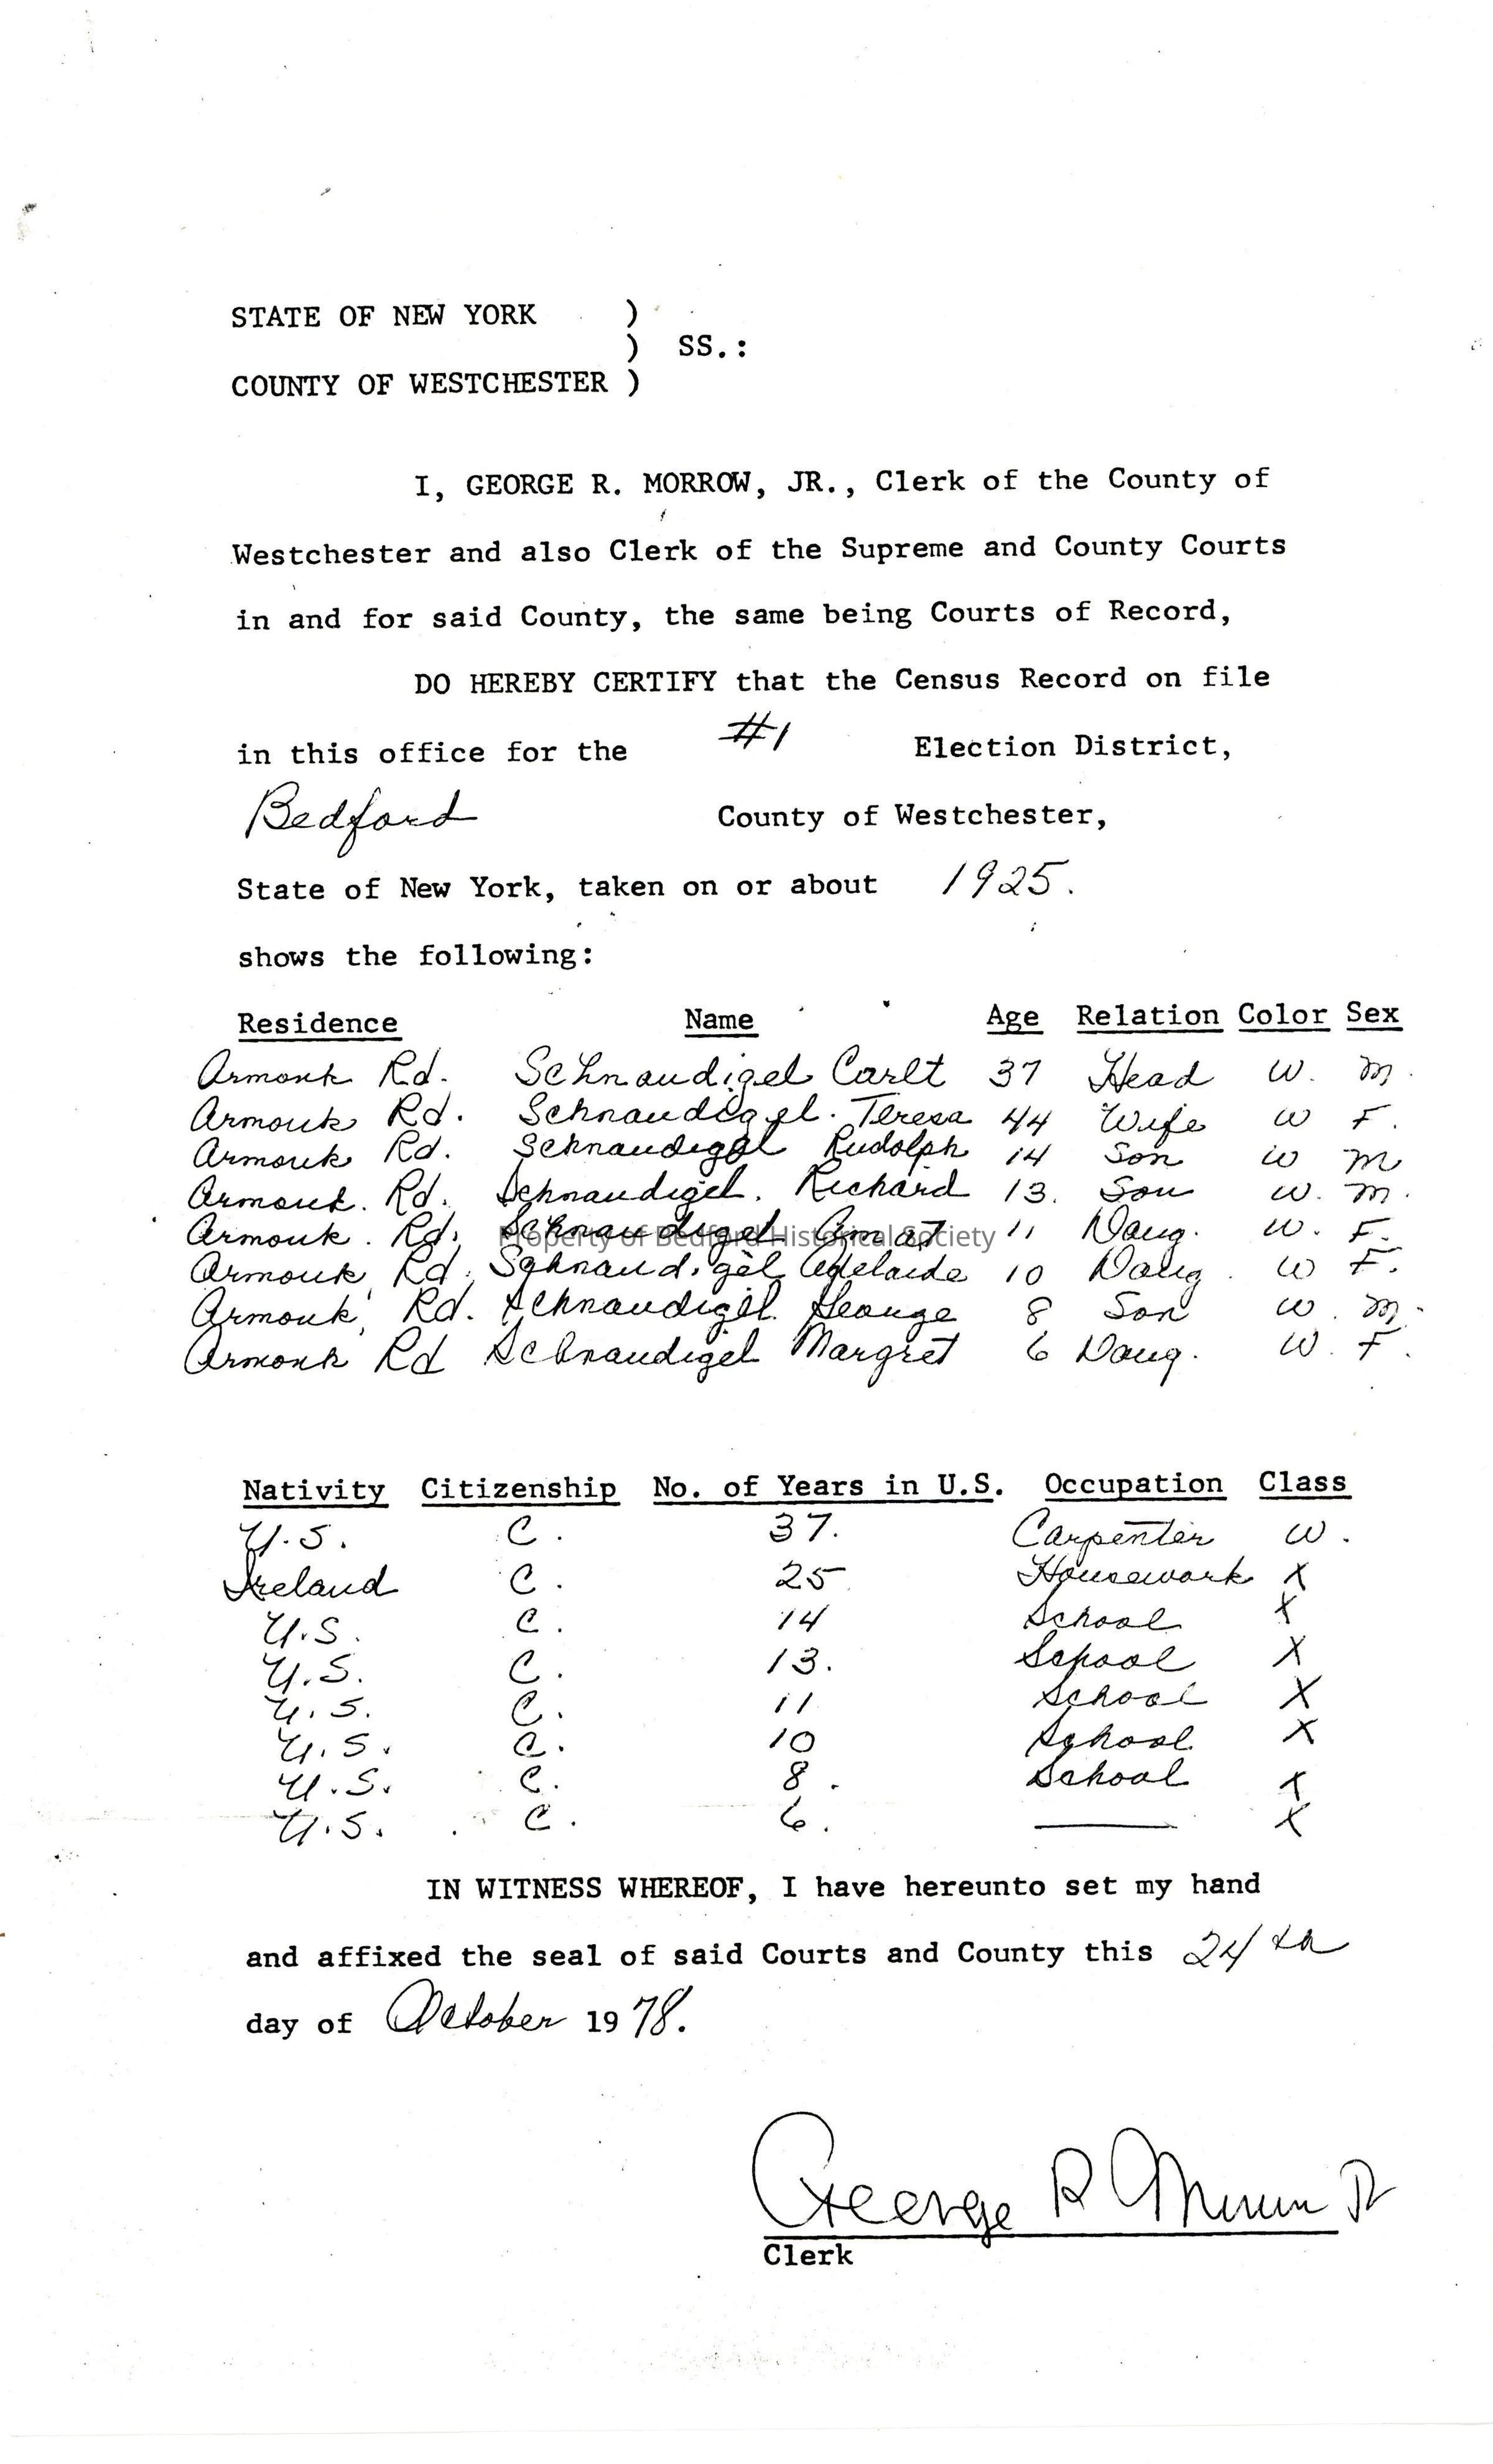 STATE OF NEW YORK )
) SS.:
COUNTY OF WESTCHESTER )
I, GEORGE R. MORROW, JR., Clerk of the County of
Westchester and also Clerk of the Supreme and County Courts
in and for said County, the same being Courts of Record,
DO HEREBY CERTIFY that the Census Record on file
in this office for the #1 Election District,
Bedford County of Westchester,
State of New York, taken on or about 1925.
shows the following:
Residence Name Age Relation Color Sex
Armonk Rd. Schnaudigel Carlt 37 Head W. M.
Armonk Rd. Schnaudigel. Teresa 44 Wife W F.
Armonk Rd. Schnaudigel Rudolph 14 Son W M
Armonk. Rd. Schnaudigel. Richard 13. Son W. M.
Armonk. Rd. Schnaudigel 11 Daug. W. F.
Property of Bedford Historical Society
Armonk, Rd. Schnaudigel Adelaide 10 Daug. W F.
Armonk, Rd. Schnaudigel. George 8 Son W. M.
Armonk Rd Schnaudigel Margret 6 Daug. W. F.
Nativity Citizenship No. of Years in U.S. Occupation Class
U.S. C. 37. Carpenter W.
Ireland C. 25 Housework X
U.S. C. 14 School X
U.S. C. 13. School X
U.S. C. 11 School X
U.S. C. 10 School X
U.S. C. 8. School X
U.S. C. 6. — X
IN WITNESS WHEREOF, I have hereunto set my hand
and affixed the seal of said Courts and County this 24th
day of October 1978.
George R Morrow Jr
Clerk